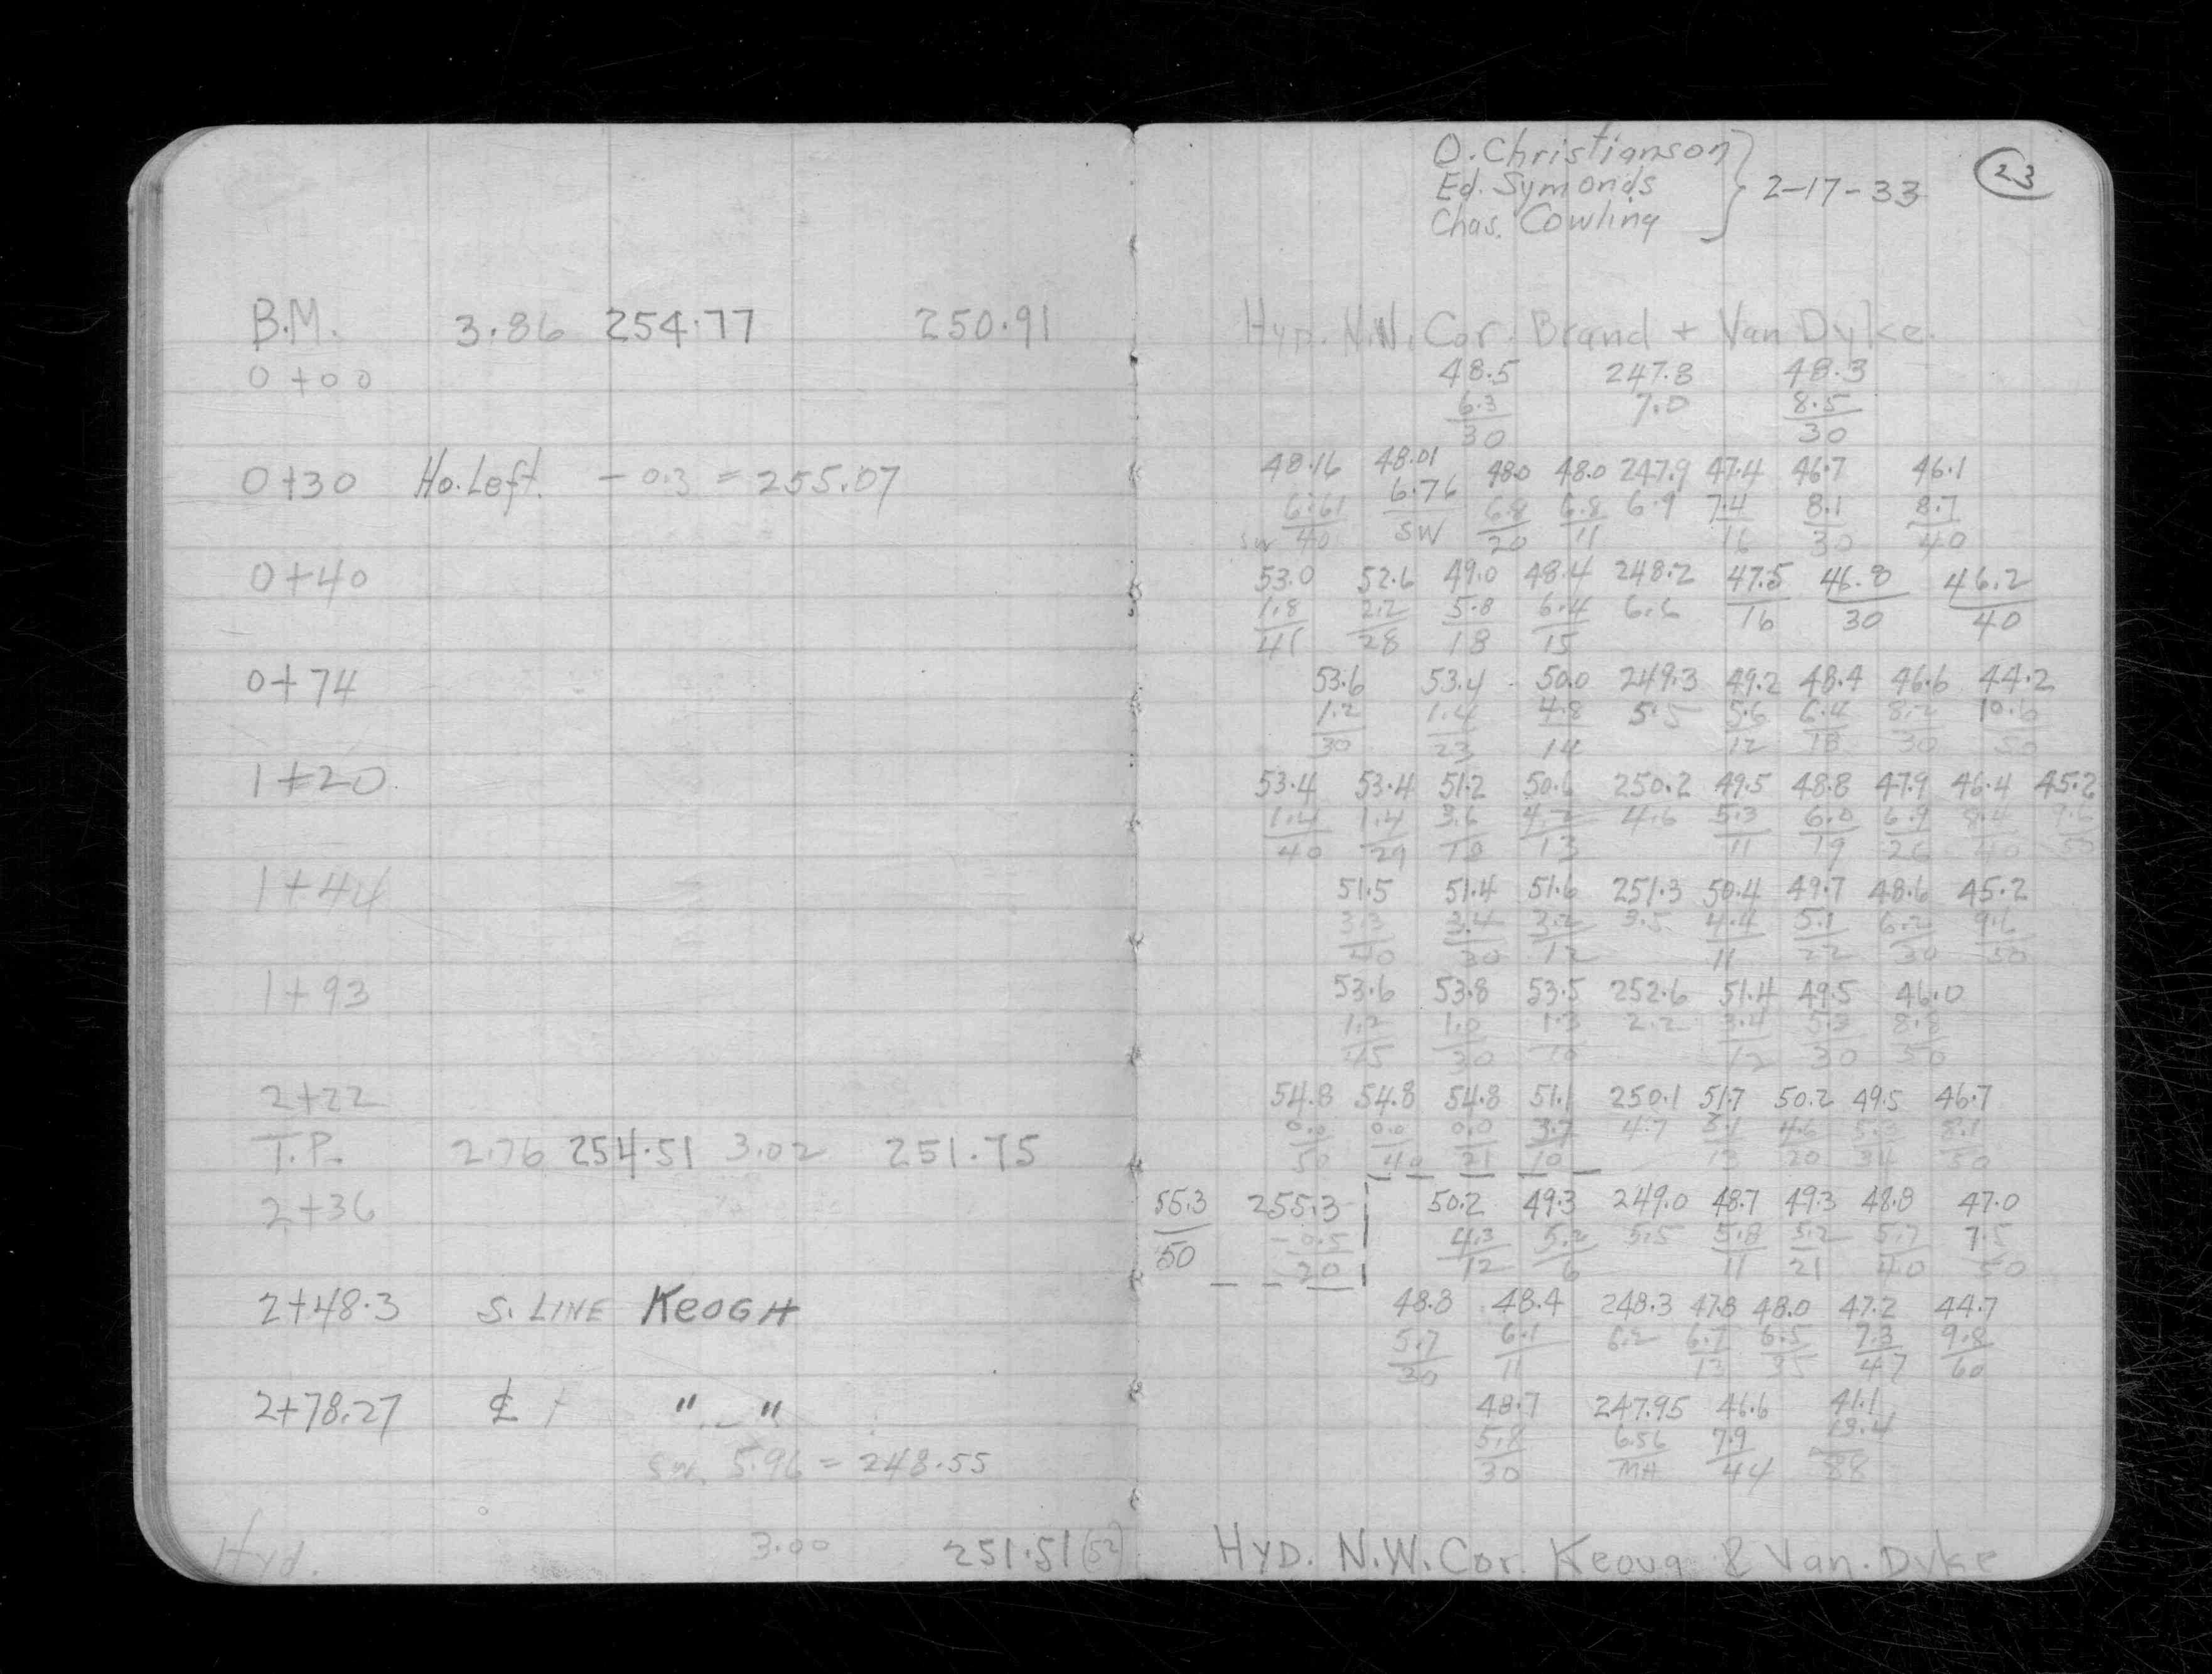 O. Christianson
Ed. Symonds } 2-17-33
Chas. Cowling
23
B.M. 3.86 254.77 250.91 Hyd. N.W. Cor. Brand + Van Dyke.
0+00 48.5 247.8 48.3
6.3 7.0 8.5
30 30
0+30 Ho. Left. - 0.3 = 255.07 48.16 48.01 48.0 48.0 247.9 47.4 46.7 46.1
6.61 6.76 6.8 6.8 6.9 7.4 8.1 8.7
SW 40 SW 20 11 16 30 40
0+40 53.0 52.6 49.0 48.4 248.2 47.5 46.8 46.2
1.8 2.2 5.8 6.4 6.6 16 30 40
41 28 18 15
0+74 53.6 53.4 50.0 249.3 49.2 48.4 46.6 44.2
1.2 1.4 4.8 5.5 5.6 6.4 8.2 10.6
30 23 14 12 18 30 50
1+20 53.4 53.4 51.2 50.6 250.2 49.5 48.8 47.9 46.4 45.2
1.4 1.4 3.6 4.2 4.6 5.3 6.0 6.9 8.4 9.6
40 29 18 13 11 19 26 40 50
1+44 51.5 51.4 51.6 251.3 50.4 49.7 48.6 45.2
3.3 3.4 3.2 3.5 4.4 5.1 6.2 9.6
40 30 12 11 22 30 50
1+93 53.6 53.8 53.5 252.6 51.4 49.5 46.0
1.2 1.0 1.3 2.2 3.4 5.3 8.8
45 30 10 12 30 50
2+22 54.8 54.8 54.8 51.1 250.1 51.7 50.2 49.5 46.7
0.0 0.0 0.0 3.7 4.7 3.1 4.6 5.3 8.1
T.P. 2.76 254.51 3.02 251.75 50 40 21 10 13 20 34 50
2+36 55.3 255.3 50.2 49.3 249.0 48.7 49.3 48.8 47.0
50 -0.5 4.3 5.2 5.5 5.8 5.2 5.7 7.5
20 12 6 11 21 40 50
2+48.3 S. LINE KEOGH 48.8 48.4 248.3 47.8 48.0 47.2 44.7
5.7 6.1 6.2 6.7 6.5 7.3 9.8
30 11 13 35 47 60
2+78.27 ℄ " " 48.7 247.95 46.6 41.1
5.8 6.56 7.9 13.4
SW. 5.96 = 248.55 30 MH 44 88
Hyd. 3.00 251.51 (52) HYD. N.W. Cor. Keoug & Van. Dyke